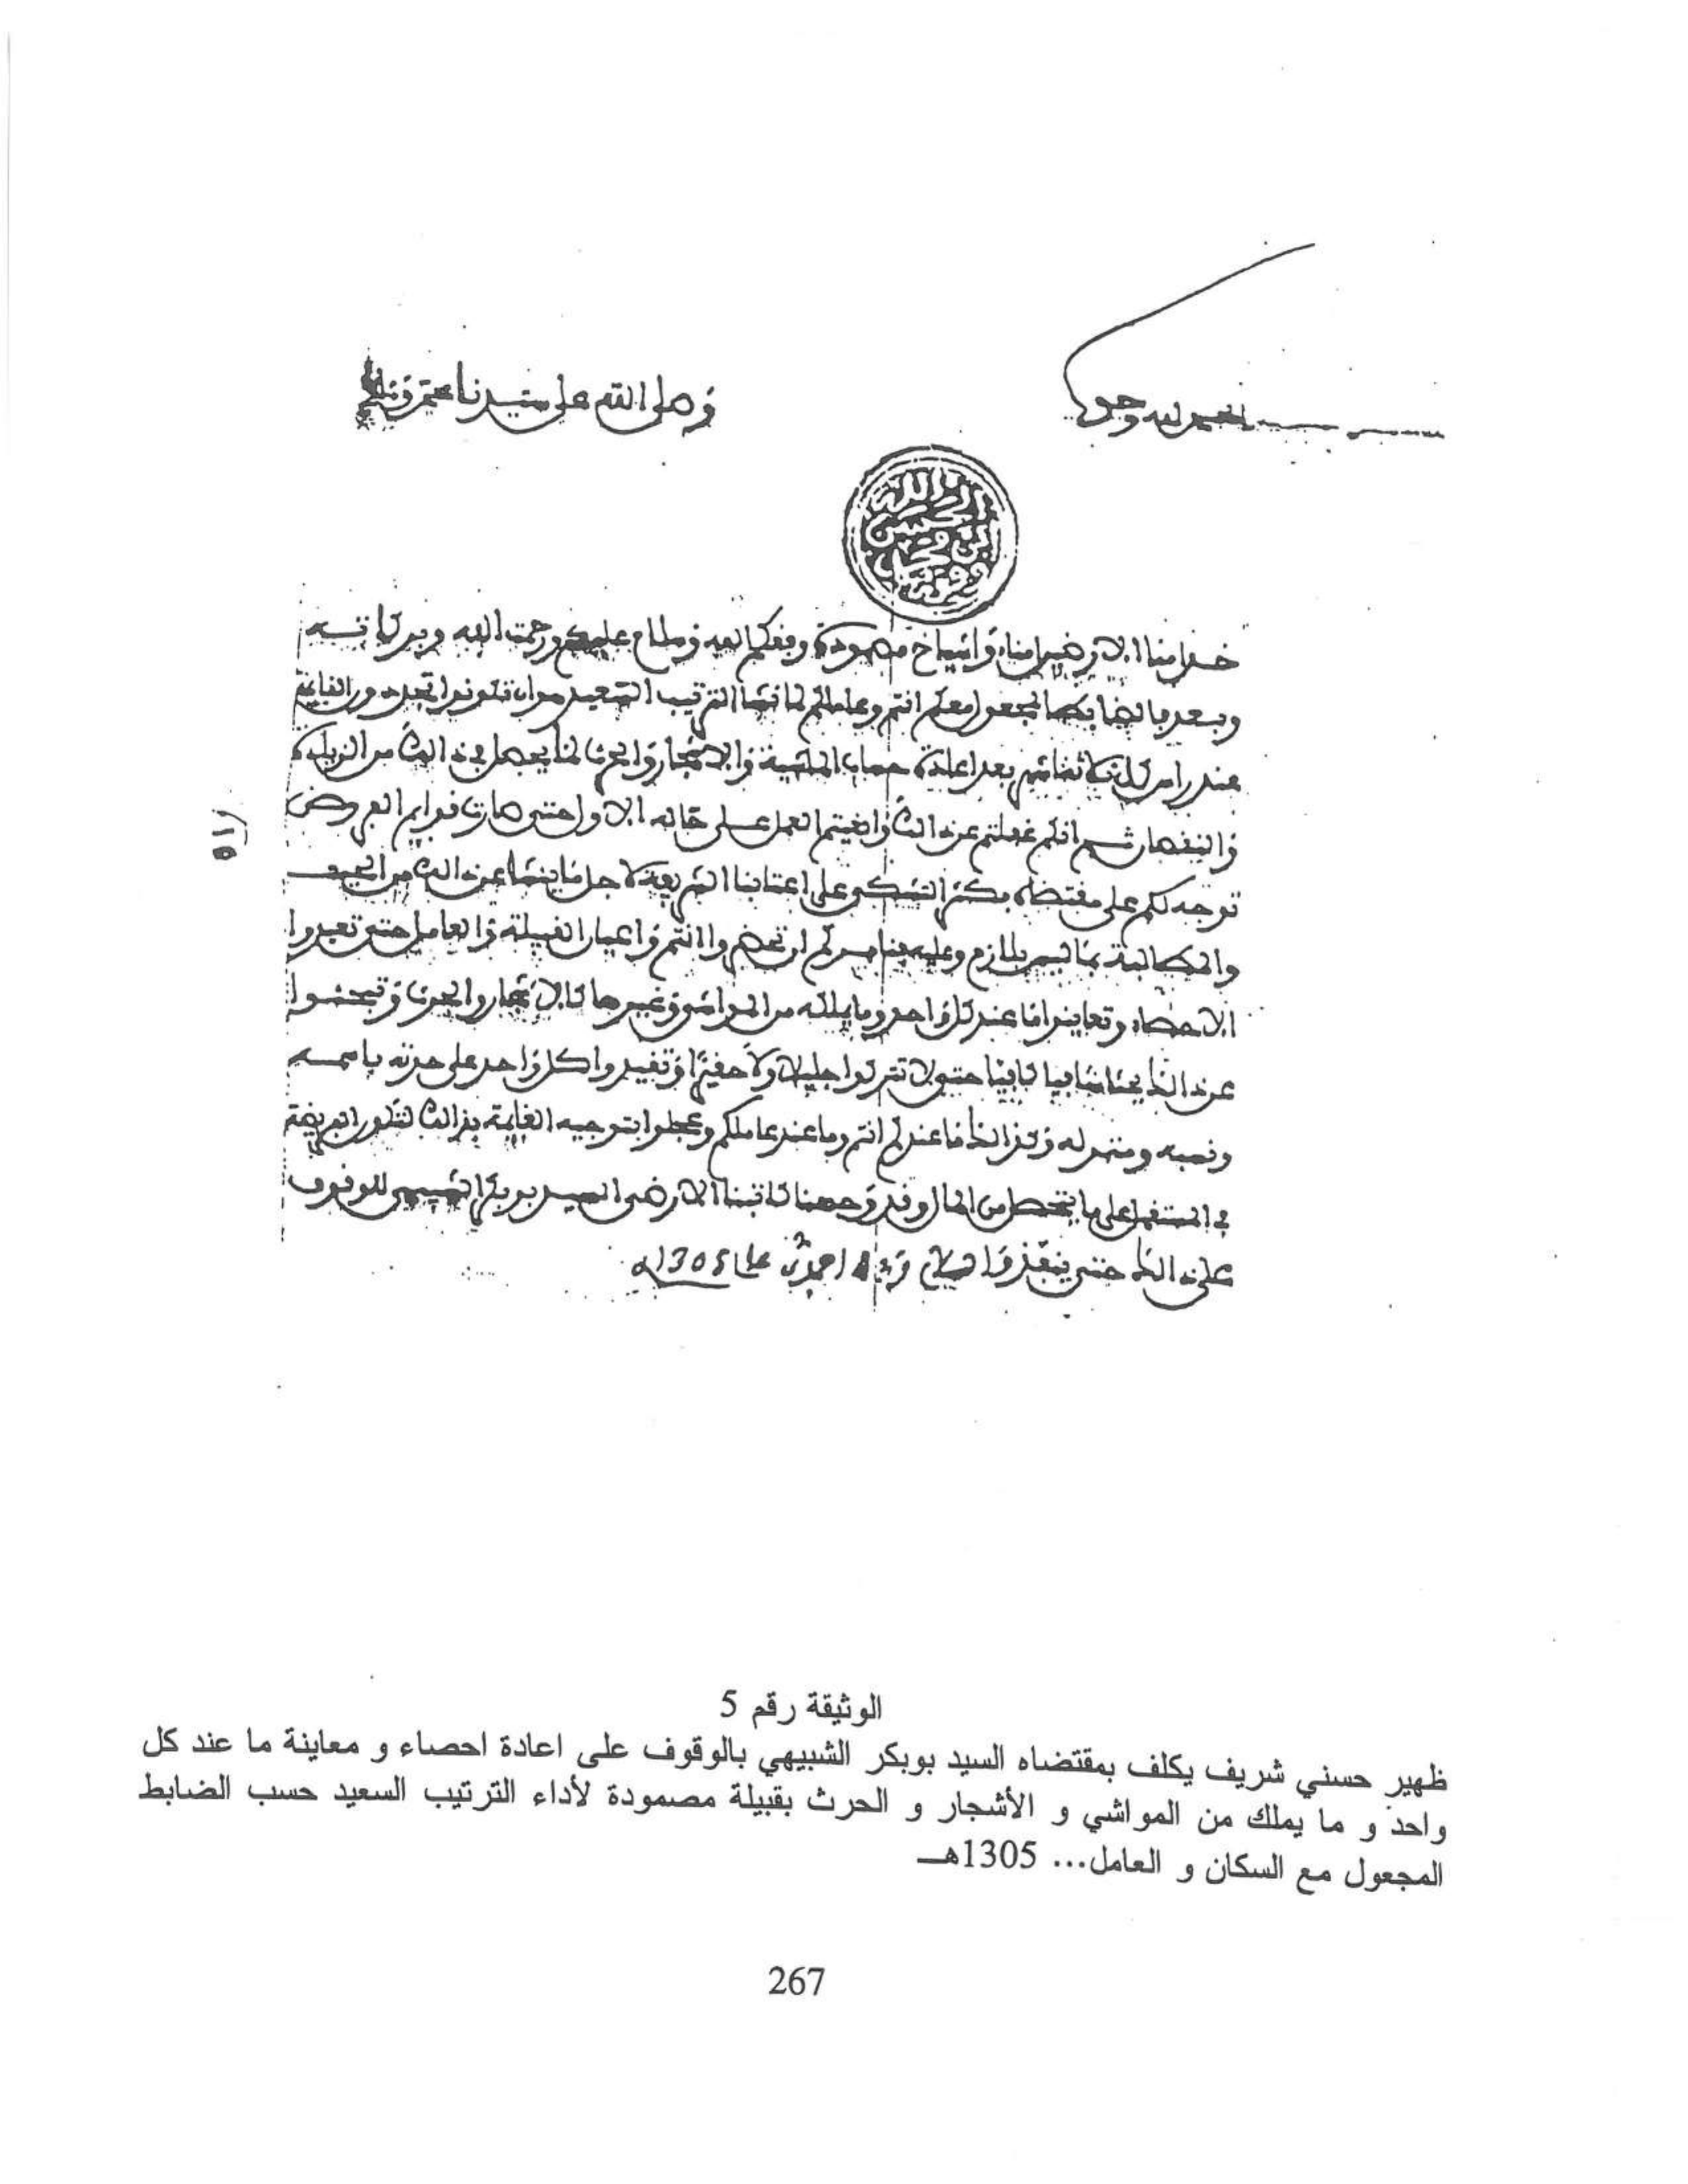 الحمد لله وحده
وصلى الله على سيدنا محمد وسلم
خدامنا الارضين امناء واشياخ مصمودة وفقكم الله وسلام عليكم ورحمت الله وبركاته
وبعد فالضابط المجعول معكم انتم وعاملكم لما نشأ الترتيب السعيد هو ان تكونوا تجددون القايمة
عند راس كل سنة بعد اعادة حساب الماشية والاشجار والحرث لما يحصل في ذالك من الزيادة
والنقصان ثم انكم غفلتم عن ذالك وابقيتم العمل على حاله الاول حتى صارت قوايم الفروض
توجه لكم على مقتضاه فكثر التشكي على اعتابنا الشريفة لاجل ما ينشأ عن ذالك من الحيف
والمطالبة بما ليس بلازم وعليه فنامركم ان تحضروا انتم واعيان القبيلة والعامل حتى تعيدوا
الاحصاء وتعاينوا ما عند كل واحد وما يملكه من المواشي وغيرها كالاشجار والحرث وتبحثوا
عن ذالك بحثا شافيا كافيا حتى لا تتركوا جليلا ولا حقيرا وتقيدوا كل واحد على حدته باسمه
ونسبه ومنزله وكذالك ما عندكم انتم وما عند عاملكم وعجلوا بتوجيه القايمة بذالك لتكون الفريضة
في المستقبل على ما يتحصل من المال وقد وجهنا كاتبنا الارضى السيد بوبكر الشبيهي للوقوف
على ذالك حتى ينفذ والسلام في عام 1305هـ
الوثيقة رقم 5
ظهير حسني شريف يكلف بمقتضاه السيد بوبكر الشبيهي بالوقوف على اعادة احصاء و معاينة ما عند كل
واحد و ما يملك من المواشي و الأشجار و الحرث بقبيلة مصمودة لأداء الترتيب السعيد حسب الضابط
المجعول مع السكان و العامل... 1305هـ
267